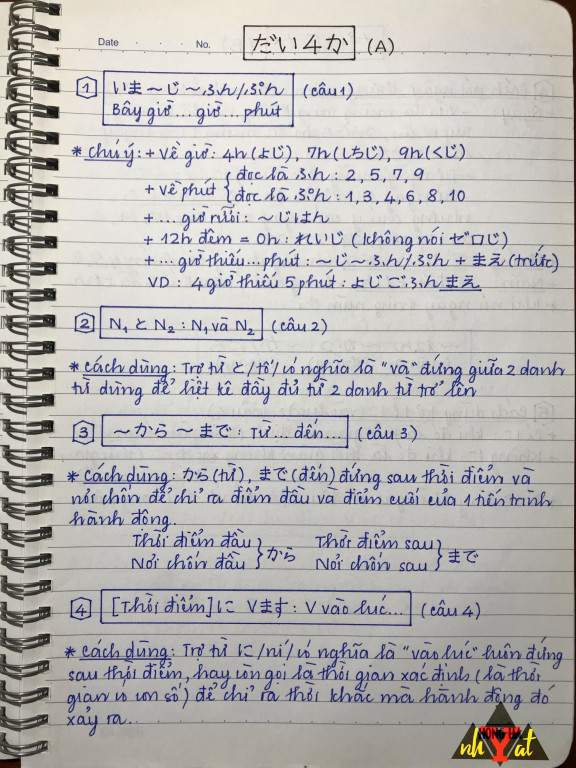 Date . . . No. だい4か (A)
1 いま〜じ〜ふん/ぷん (câu 1)
Bây giờ ... giờ ... phút
* chú ý: + Về giờ: 4h (よじ), 7h (しちじ), 9h (くじ)
+ Về phút { đọc là ふん: 2, 5, 7, 9
đọc là ぷん: 1, 3, 4, 6, 8, 10
+ ... giờ rưỡi: 〜じはん
+ 12h đêm = 0h: れいじ (không nói ゼロじ)
+ ... giờ thiếu ... phút: 〜じ〜ふん/ぷん + まえ (trước)
VD: 4 giờ thiếu 5 phút: よじごふんまえ
2 N₁ と N₂: N₁ và N₂ (câu 2)
* cách dùng: Trợ từ と /tô/ có nghĩa là "và" đứng giữa 2 danh
từ dùng để liệt kê đầy đủ từ 2 danh từ trở lên
3 〜から〜まで: Từ ... đến ... (câu 3)
* cách dùng: から (từ), まで (đến) đứng sau thời điểm và
nơi chốn để chỉ ra điểm đầu và điểm cuối của 1 tiến trình
hành động.
Thời điểm đầu } から Thời điểm sau } まで
Nơi chốn đầu Nơi chốn sau
4 [Thời điểm] に Vます: V vào lúc... (câu 4)
* cách dùng: Trợ từ に /ni/ có nghĩa là "vào lúc" luôn đứng
sau thời điểm, hay còn gọi là thời gian xác định (là thời
gian có con số) để chỉ ra thời khắc mà hành động đó
xảy ra.
nh at